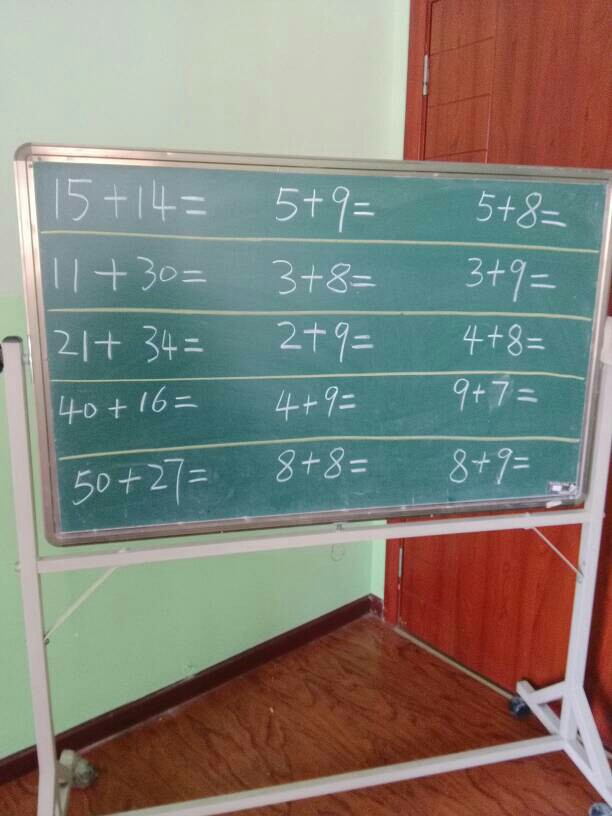 15+14= 5+9= 5+8=
11+30= 3+8= 3+9=
21+34= 2+9= 4+8=
40+16= 4+9= 9+7=
50+27= 8+8= 8+9=